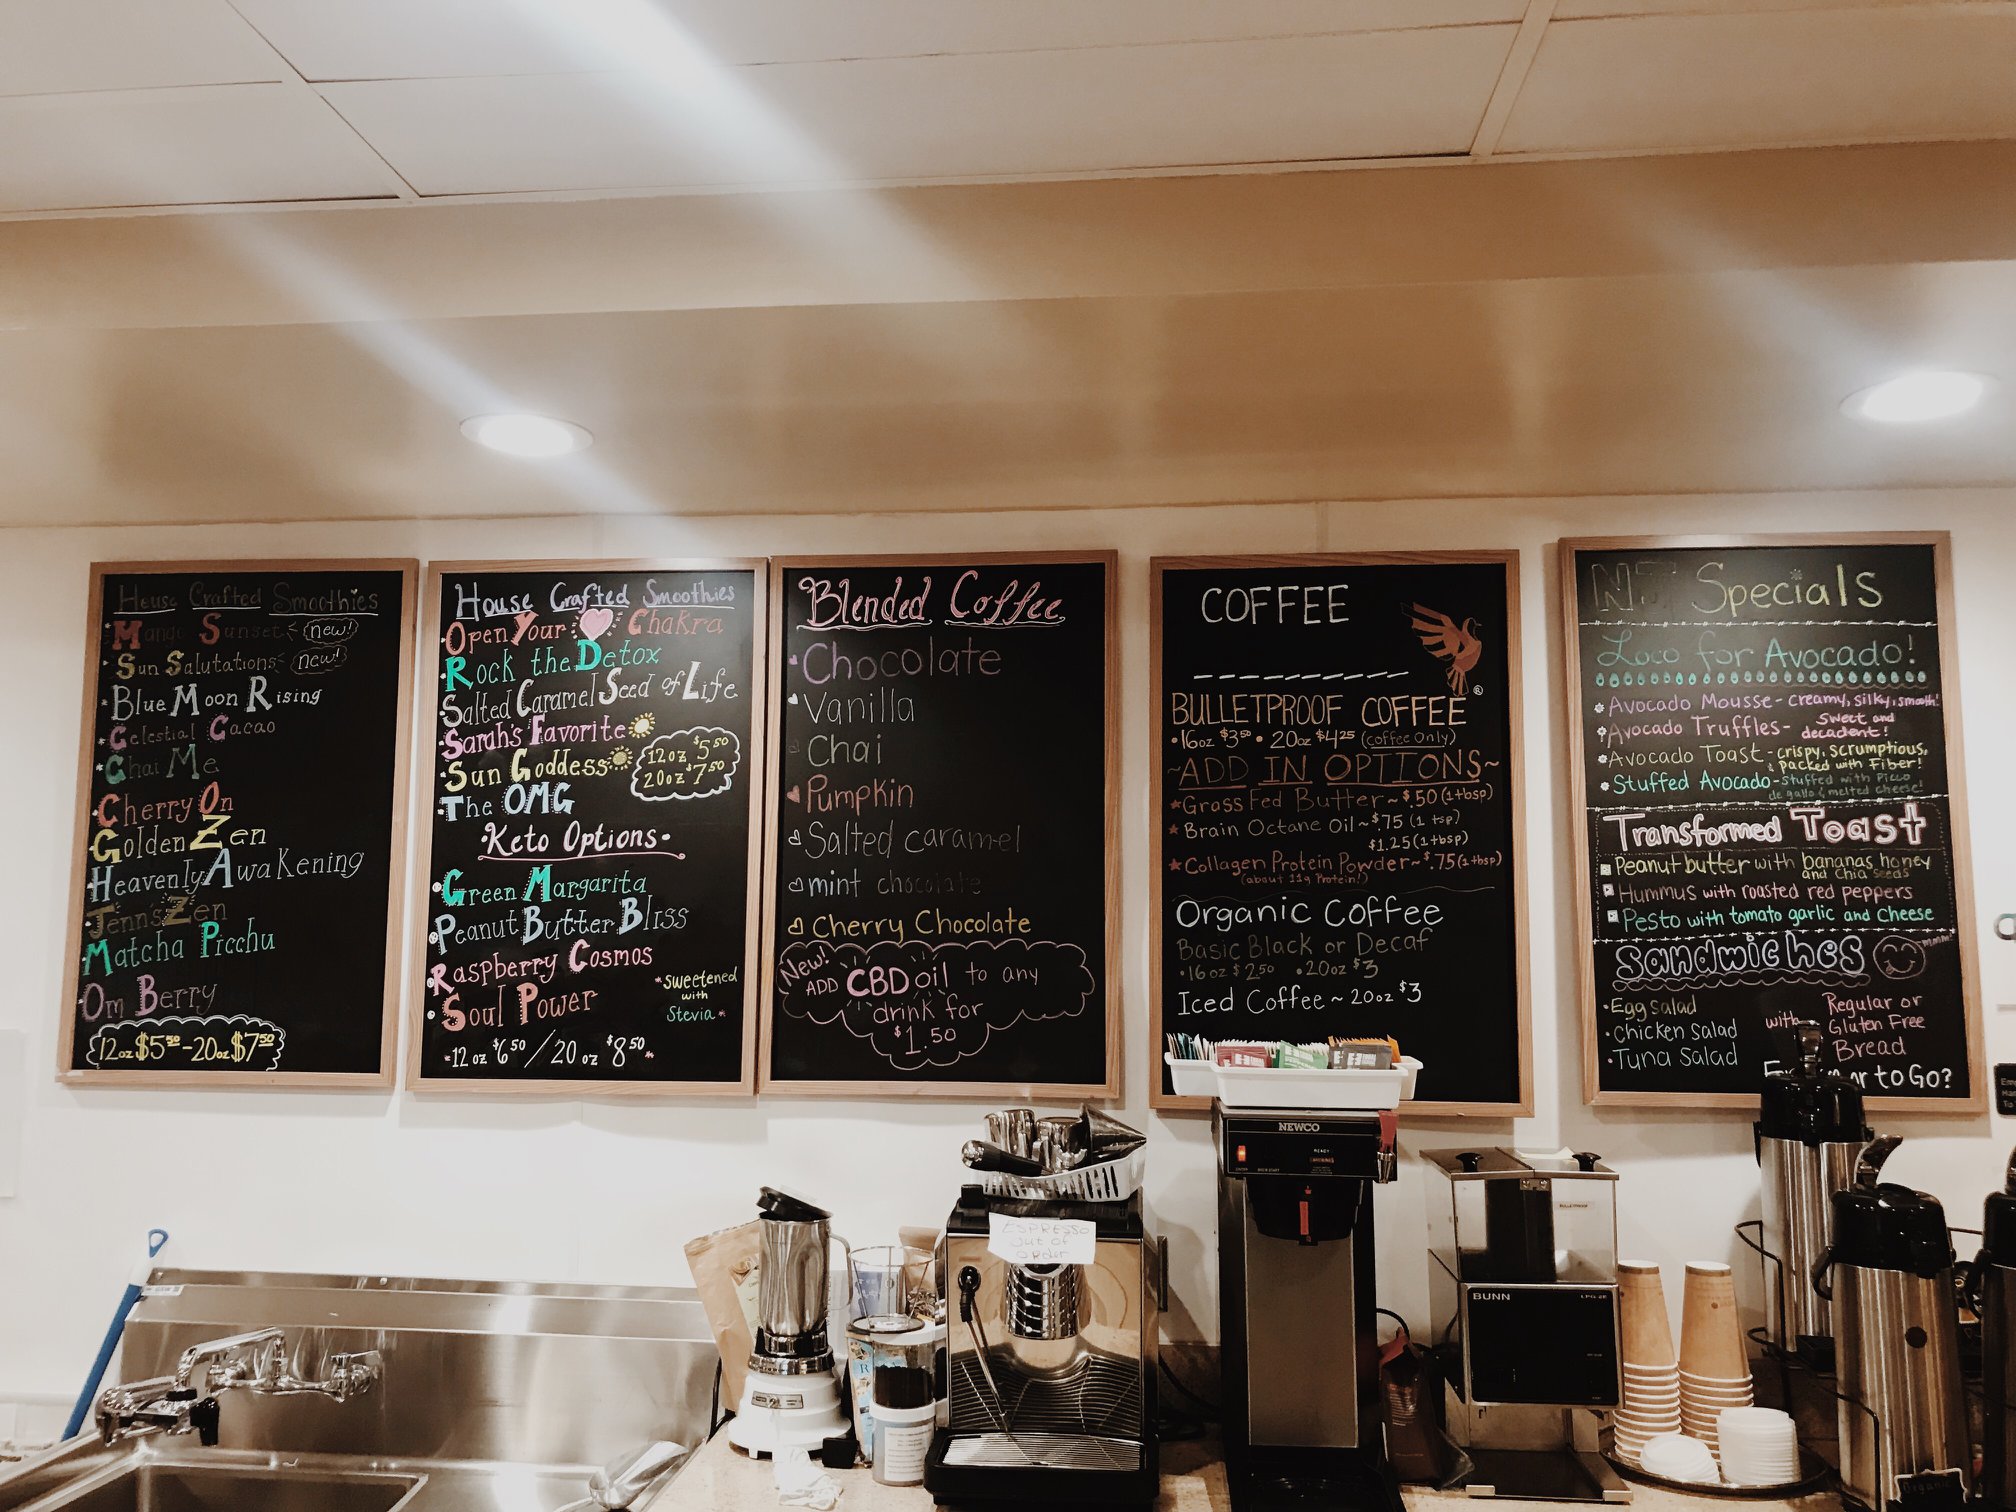 House Crafted Smoothies
Mango Sunset new!
Sun Salutations new!
Blue Moon Rising
Celestial Cacao
Chai Me
Cherry On
Golden Zen
Heavenly Awakening
Jenn's Zen
Matcha Picchu
Om Berry
12oz $5.50 - 20oz $7.50
House Crafted Smoothies
Open Your Chakra
Rock the Detox
Salted Caramel Seed of Life
Sarah's Favorite
Sun Goddess
12oz $5.50
20oz $7.50
The OMG
Keto Options
Green Margarita
Peanut Butter Bliss
Raspberry Cosmos
Soul Power
*Sweetened
with
Stevia*
12 oz $6.50 / 20 oz $8.50
Blended Coffee
Chocolate
Vanilla
Chai
Pumpkin
Salted caramel
mint chocolate
Cherry Chocolate
New!
ADD CBD oil to any
drink for
$1.50
COFFEE
BULLETPROOF COFFEE ®
•16oz $3.50 • 20oz $4.25 (coffee only)
~ADD IN OPTIONS~
Grass Fed Butter ~ $.50 (1 tbsp)
Brain Octane Oil ~ $.75 (1 tsp)
$1.25 (1 tbsp)
Collagen Protein Powder ~ $.75 (1 tbsp)
(about 11g Protein!)
Organic Coffee
Basic Black or Decaf
•16 oz $2.50 •20oz $3
Iced Coffee ~ 20oz $3
Specials
Loco for Avocado!
Avocado Mousse - creamy, silky, smooth!
Avocado Truffles - Sweet and
decadent!
Avocado Toast - crispy, scrumptious,
& packed with Fiber!
Stuffed Avocado - stuffed with Pico
de gallo & melted cheese!
Transformed Toast
Peanut butter with bananas, honey
and Chia seeds
Hummus with roasted red peppers
Pesto with tomato garlic and cheese
Sandwiches
mmm!
•Egg Salad
•Chicken Salad
•Tuna Salad
with
Regular or
Gluten Free
Bread
or to Go?
NEWCO
READY
ESPRESSO
out of
order
BULLETPROOF
BUNN
LPG-2E
Organic